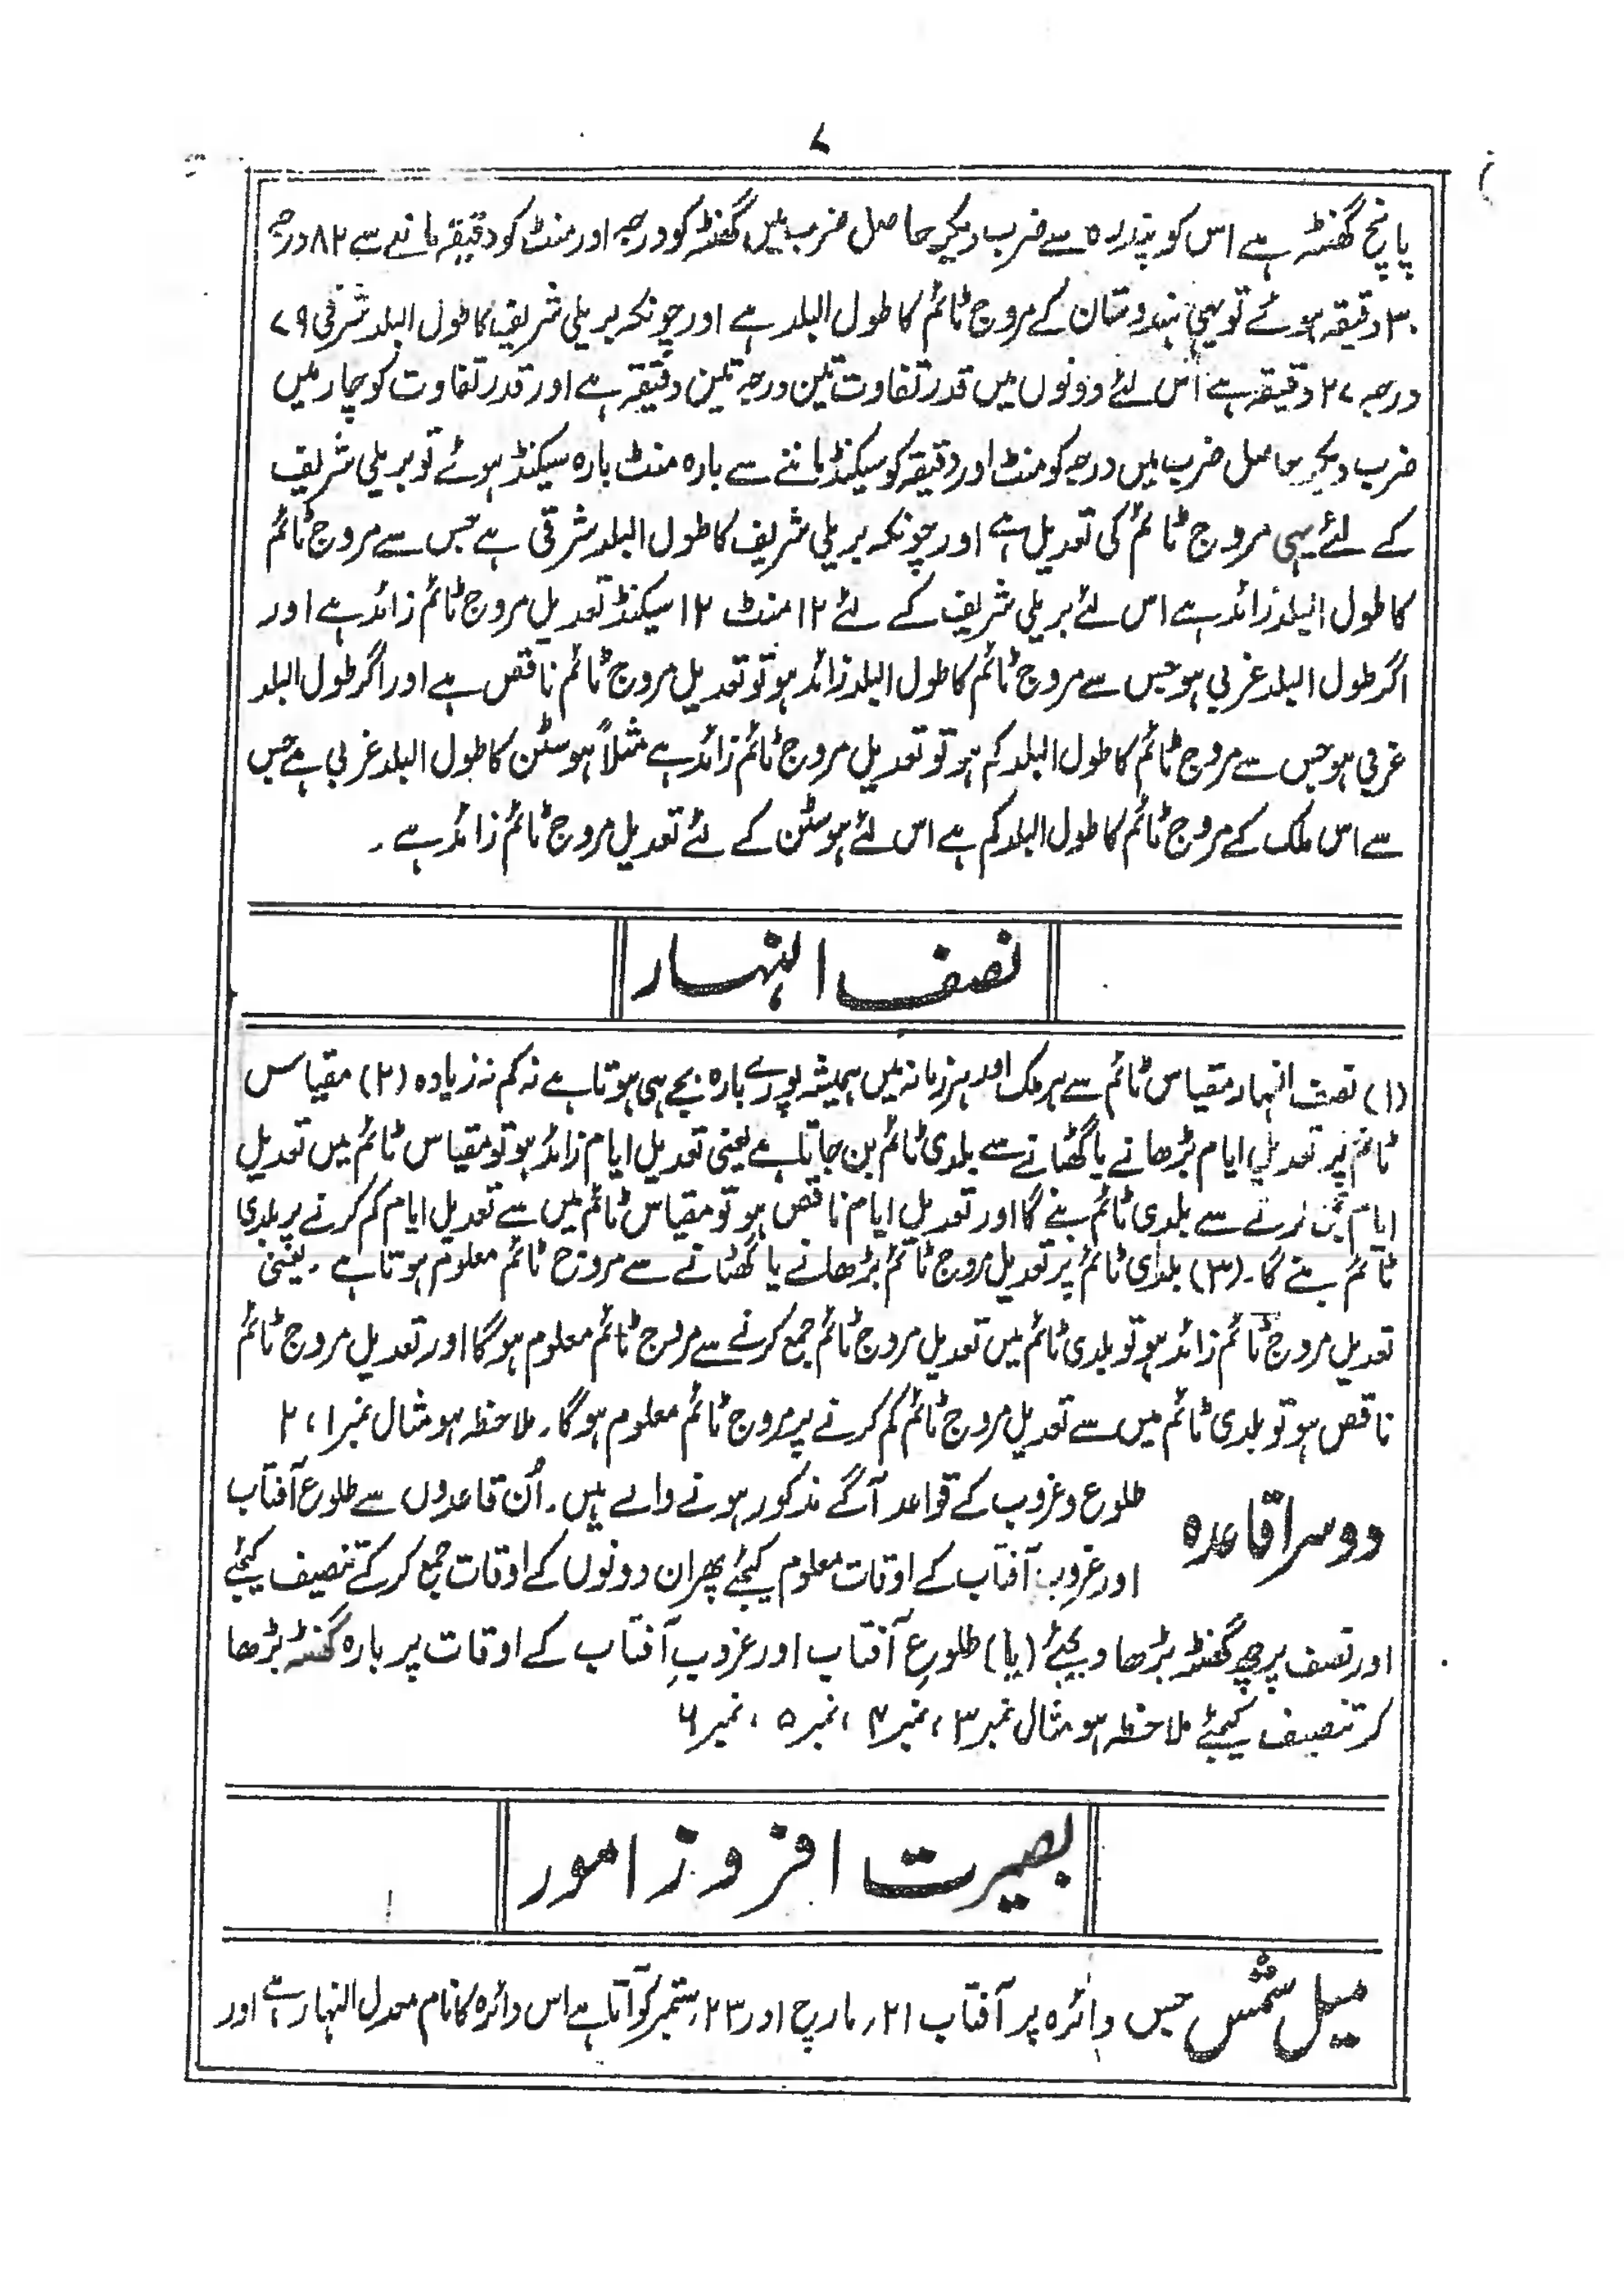 ۷
پانچ گھنٹہ ہے اس کو پندرہ سے ضرب دیکر حاصل ضرب میں گھنٹہ کو درجہ اور منٹ کو دقیقہ ماننے سے ۸۲ درجہ
۳۰ دقیقہ ہوئے تو یہی ہندوستان کے مروج ٹائم کا طول البلد ہے اور چونکہ بریلی شریف کا طول البلد شرقی ۷۹
درجہ ۲۷ دقیقہ ہے اس لئے دونوں میں قدر تفاوت تین درجہ تین دقیقہ ہے اور قدر تفاوت کو چار میں
ضرب دیکر حاصل ضرب میں درجہ کو منٹ اور دقیقہ کو سیکنڈ ماننے سے بارہ منٹ بارہ سیکنڈ ہوئے تو بریلی شریف
کے لئے یہی مروج ٹائم کی تعدیل ہے اور چونکہ بریلی شریف کا طول البلد شرقی ہے جس سے مروج ٹائم
کا طول البلد زائد ہے اس لئے بریلی شریف کے لئے ۱۲ منٹ ۱۲ سیکنڈ تعدیل مروج ٹائم زائد ہے اور
اگر طول البلد غربی ہو جس سے مروج ٹائم کا طول البلد زائد ہو تو تعدیل مروج ٹائم ناقص ہے اور اگر طول البلد
غربی ہو جس سے مروج ٹائم کا طول البلد کم ہو تو تعدیل مروج ٹائم زائد ہے مثلاً ہوسٹن کا طول البلد غربی ہے جس
سے اس ملک کے مروج ٹائم کا طول البلد کم ہے اس لئے ہوسٹن کے لئے تعدیل مروج ٹائم زائد ہے ۔
نصف النہار
(۱) نصف النہار مقیاس ٹائم سے ہر ملک اور ہر زمانہ میں ہمیشہ پورے بارہ بجے ہی ہوتا ہے نہ کم نہ زیادہ (۲) مقیاس
ٹائم پر تعدیل ایام بڑھانے یا گھٹانے سے بلدی ٹائم بن جاتا ہے یعنی تعدیل ایام زائد ہو تو مقیاس ٹائم میں تعدیل
ایام کرنے سے بلدی ٹائم بنے گا اور تعدیل ایام ناقص ہو تو مقیاس ٹائم میں سے تعدیل ایام کم کرنے پر بلدی
ٹائم بنے گا ۔ (۳) بلدی ٹائم پر تعدیل مروج ٹائم بڑھانے یا گھٹانے سے مروج ٹائم معلوم ہوتا ہے ۔ یعنی
تعدیل مروج ٹائم زائد ہو تو بلدی ٹائم میں تعدیل مروج ٹائم جمع کرنے سے مروج ٹائم معلوم ہوگا اور تعدیل مروج ٹائم
ناقص ہو تو بلدی ٹائم میں سے تعدیل مروج ٹائم کم کرنے پر مروج ٹائم معلوم ہوگا ۔ ملاحظہ ہو مثال نمبر ۱ ، ۲
دوسرا قاعدہ طلوع و غروب کے قواعد آگے مذکور ہونے والے ہیں ۔ اُن قاعدوں سے طلوع آفتاب
اور غروب آفتاب کے اوقات معلوم کیجئے پھر ان دونوں کے اوقات جمع کر کے تنصیف کیجئے
اور نصف پر چھ گھنٹہ بڑھا دیجئے (یا) طلوعِ آفتاب اور غروبِ آفتاب کے اوقات پر بارہ گھنٹہ بڑھا
کر تنصیف کیجئے ملاحظہ ہو مثال نمبر ۳ ، نمبر ۴ ، نمبر ۵ ، نمبر ۶
بصیرت افروز امور
میل شمس جس دائرہ پر آفتاب ۲۱؍ مارچ اور ۲۳؍ ستمبر کو آتا ہے اس دائرہ کا نام معدل النہار ہے اور